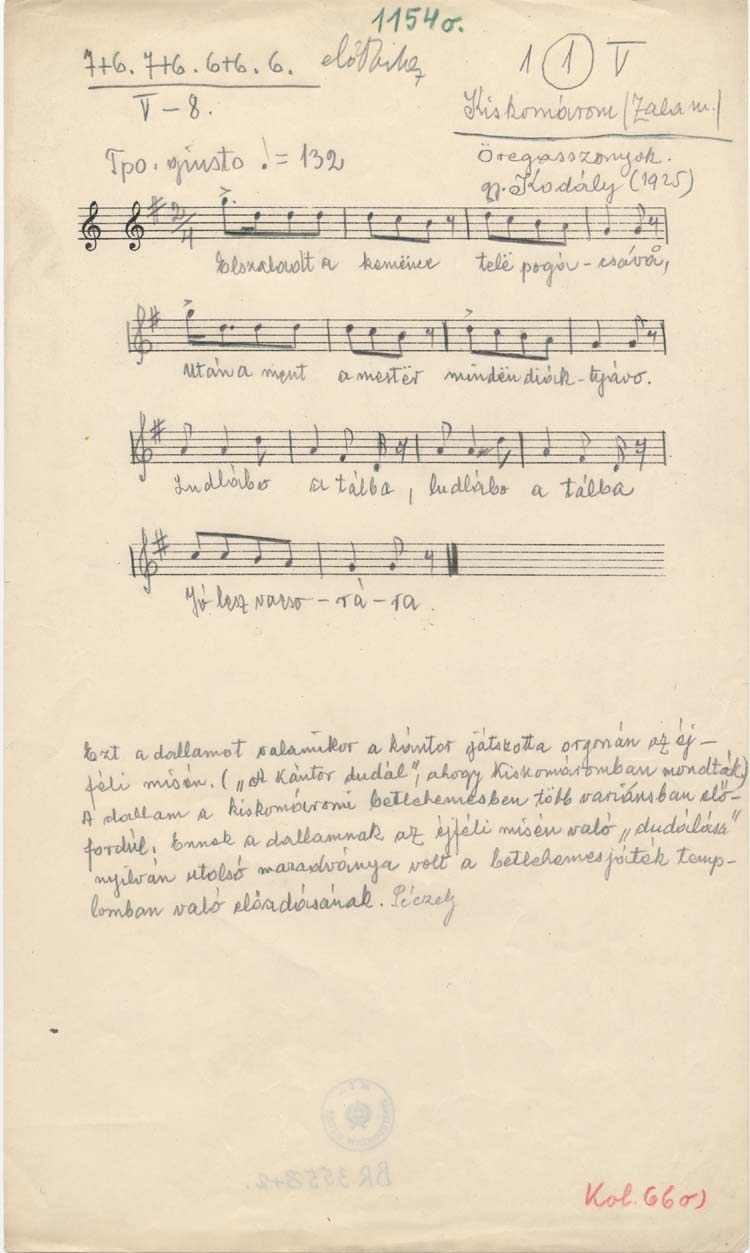 1154σ.
7+6. 7+6. 6+6. 6.
V – 8.
1 (1) V
Kiskomárom (Zala m.)
Tpo. giusto ♩ = 132
Öregasszonyok.
gy. Kodály (1925)
2/4
Elszaladt a kemënce telë pogá - csávå,
Utána ment a mestër mindën diák - tyávo.
Ludlábo a tálba, ludlábo a tálba
Jó lesz vacso - rá - ra.
Ezt a dallamot valamikor a kántor játszotta orgonán az éj-
féli misén. („A kántor dudál", ahogy Kiskomáromban mondták)
A dallam a kiskomáromi betlehemesben több variánsban elő-
fordúl. Ennek a dallamnak az éjféli misén való „dudálása"
nyilván utolsó maradványa volt a betlehemesjáték temp-
lomban való előadásának. Péczely
Kob. 66σ)